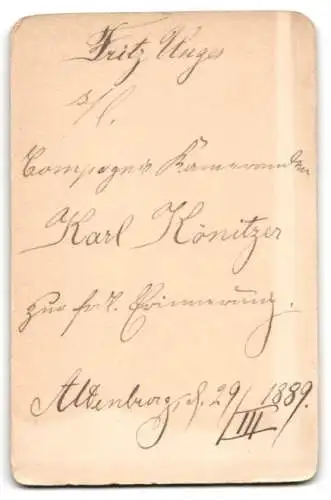 Fritz Unger
s/l.
Compagnie Kameraden
Karl Könitzer
zur frdl. Erinnerung.
Altenburg, d. 29/III 1889.